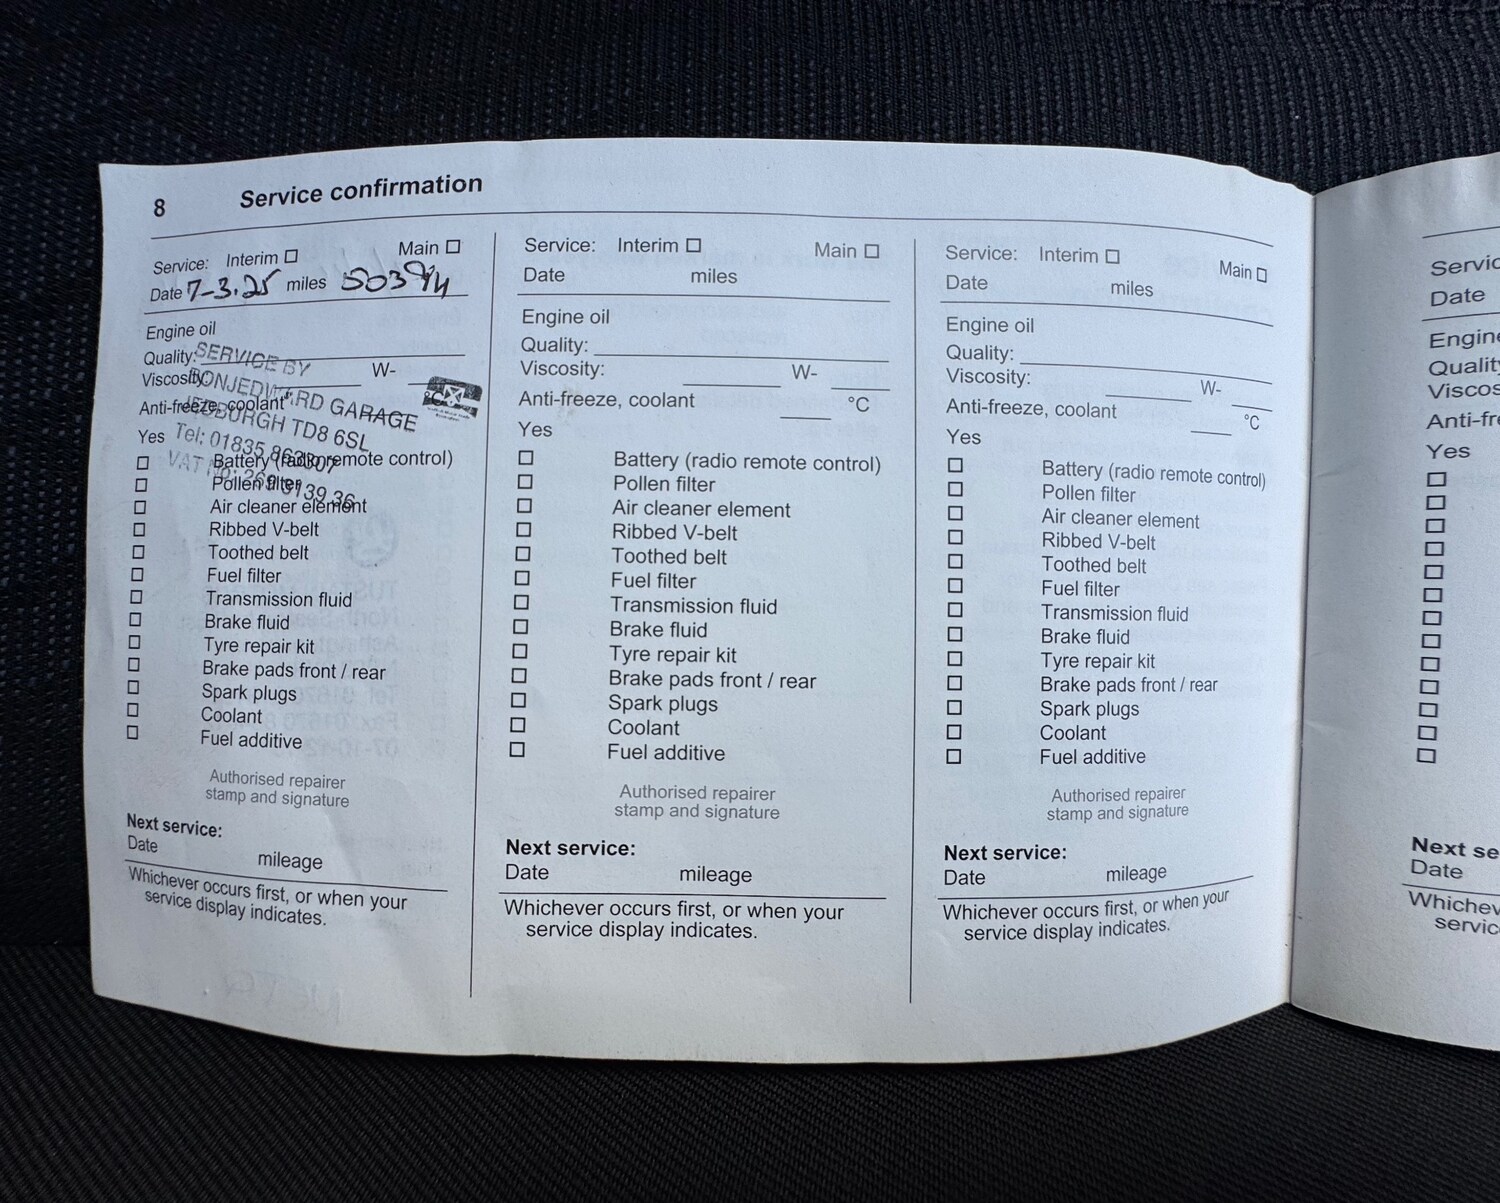 8 Service confirmation
Service: Interim Main
Date 7-3.25 miles
Engine oil
Quality:
Viscosity: W-
Anti-freeze, coolant
SERVICE BY
BONJEDWARD GARAGE
JEDBURGH TD8 6SL
Tel: 01835
VAT
Yes
Battery (radio remote control)
Pollen filter
Air cleaner element
Ribbed V-belt
Toothed belt
Fuel filter
Transmission fluid
Brake fluid
Tyre repair kit
Brake pads front / rear
Spark plugs
Coolant
Fuel additive
Authorised repairer
stamp and signature
Next service:
Date mileage
Whichever occurs first, or when your
service display indicates.
Service: Interim Main
Date miles
Engine oil
Quality:
Viscosity: W-
Anti-freeze, coolant °C
Yes
Battery (radio remote control)
Pollen filter
Air cleaner element
Ribbed V-belt
Toothed belt
Fuel filter
Transmission fluid
Brake fluid
Tyre repair kit
Brake pads front / rear
Spark plugs
Coolant
Fuel additive
Authorised repairer
stamp and signature
Next service:
Date mileage
Whichever occurs first, or when your
service display indicates.
Service: Interim Main
Date miles
Engine oil
Quality:
Viscosity: W-
Anti-freeze, coolant °C
Yes
Battery (radio remote control)
Pollen filter
Air cleaner element
Ribbed V-belt
Toothed belt
Fuel filter
Transmission fluid
Brake fluid
Tyre repair kit
Brake pads front / rear
Spark plugs
Coolant
Fuel additive
Authorised repairer
stamp and signature
Next service:
Date mileage
Whichever occurs first, or when your
service display indicates.
Servic
Date
Engine
Quality
Viscos
Anti-fr
Yes
Next se
Date
Whichev
servic